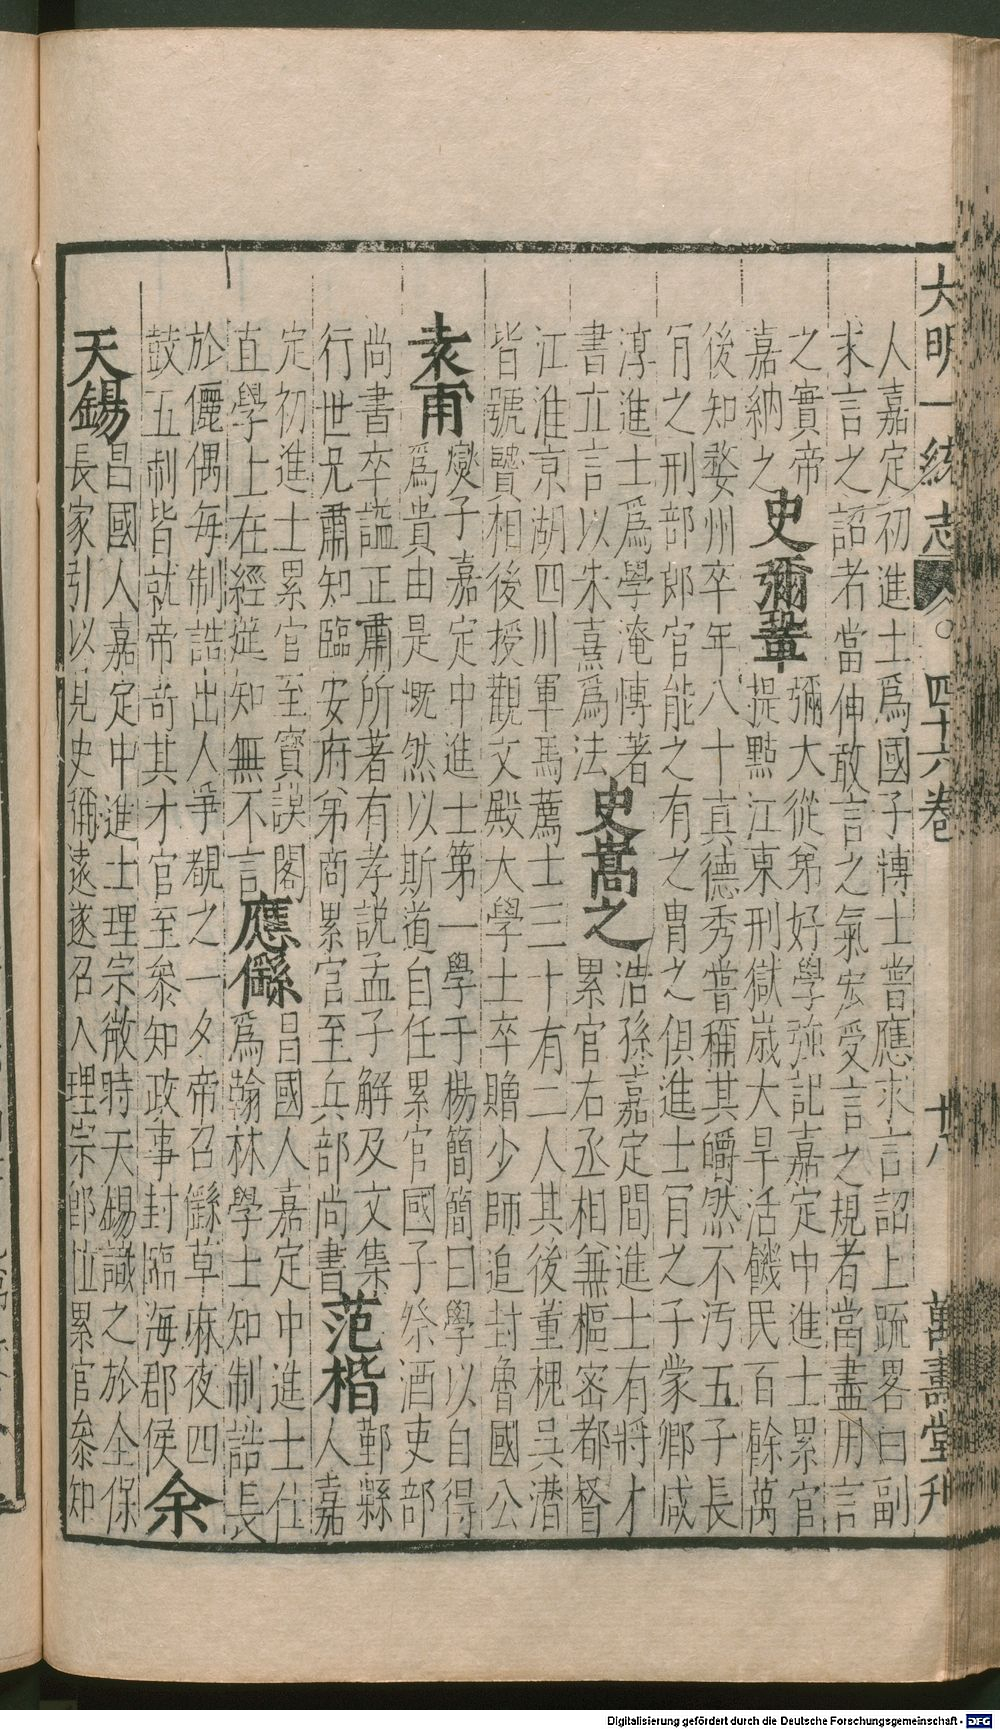 大明一統志 四十六卷 廿八 萬壽堂刊
人嘉定初進士爲國子博士嘗應求言詔上䟽畧曰副
求言之詔者當伸敢言之氣宏受言之規者當盡用言
之實帝
嘉納之
史彌鞏
彌大從弟好學強記嘉定中進士累官
提點江東刑獄嵗大旱活饑民百餘萬
後知婺州卒年八十真德秀嘗稱其皭然不汚五子長
肎之刑部郎官能之有之胄之俱進士肎之子蒙卿咸
淳進士爲學淹慱著
書立言以朱熹爲法
史嵩之
浩孫嘉定間進士有將才
累官右丞相兼樞密都督
江淮京湖四川軍馬薦士三十有二人其後董槐吳潜
皆號賢相後授觀文殿大學士卒贈少師追封魯國公
袁甫
燮子嘉定中進士第一學于楊簡簡曰學以自得
爲貴由是慨然以斯道自任累官國子祭酒吏部
尚書卒謚正肅所著有孝説孟子解及文集
行世兄肅知臨安府弟商累官至兵部尚書
范楷
鄞縣
人嘉
定初進士累官至寶謨閣
直學上在經筵知無不言
應㒡
昌國人嘉定中進士仕
爲翰林學士知制誥長
於儷偶每制誥出人爭覩之一夕帝召㒡草麻夜四
鼓五制皆就帝竒其才官至叅知政事封臨海郡侯
余
天錫
昌國人嘉定中進士理宗㣲時天錫識之於全保
長家引以見史彌遠遂召入理宗卽位累官叅知
Digitalisierung gefördert durch die Deutsche Forschungsgemeinschaft - DFG